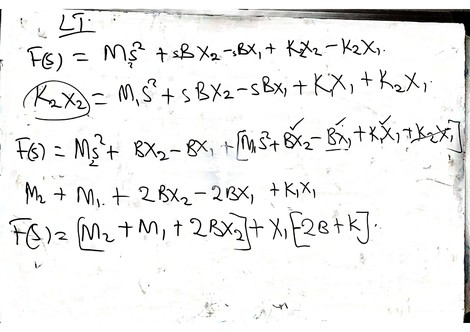 LT.
F(s) = M₂s² + sBX₂ - sBX₁ + K₂X₂ - K₂X₁.
K₂X₂ = M₁s² + sBX₂ - sBX₁ + K₁X₁ + K₂X₁.
F(s) = M₂s² + BX₂ - BX₁ + [M₁s² + BX₂ - BX₁ + K₁X₁ + K₂X₁]
M₂ + M₁ + 2BX₂ - 2BX₁ + K₁X₁
F(s) = [M₂ + M₁ + 2BX₂] + X₁[2B + K].